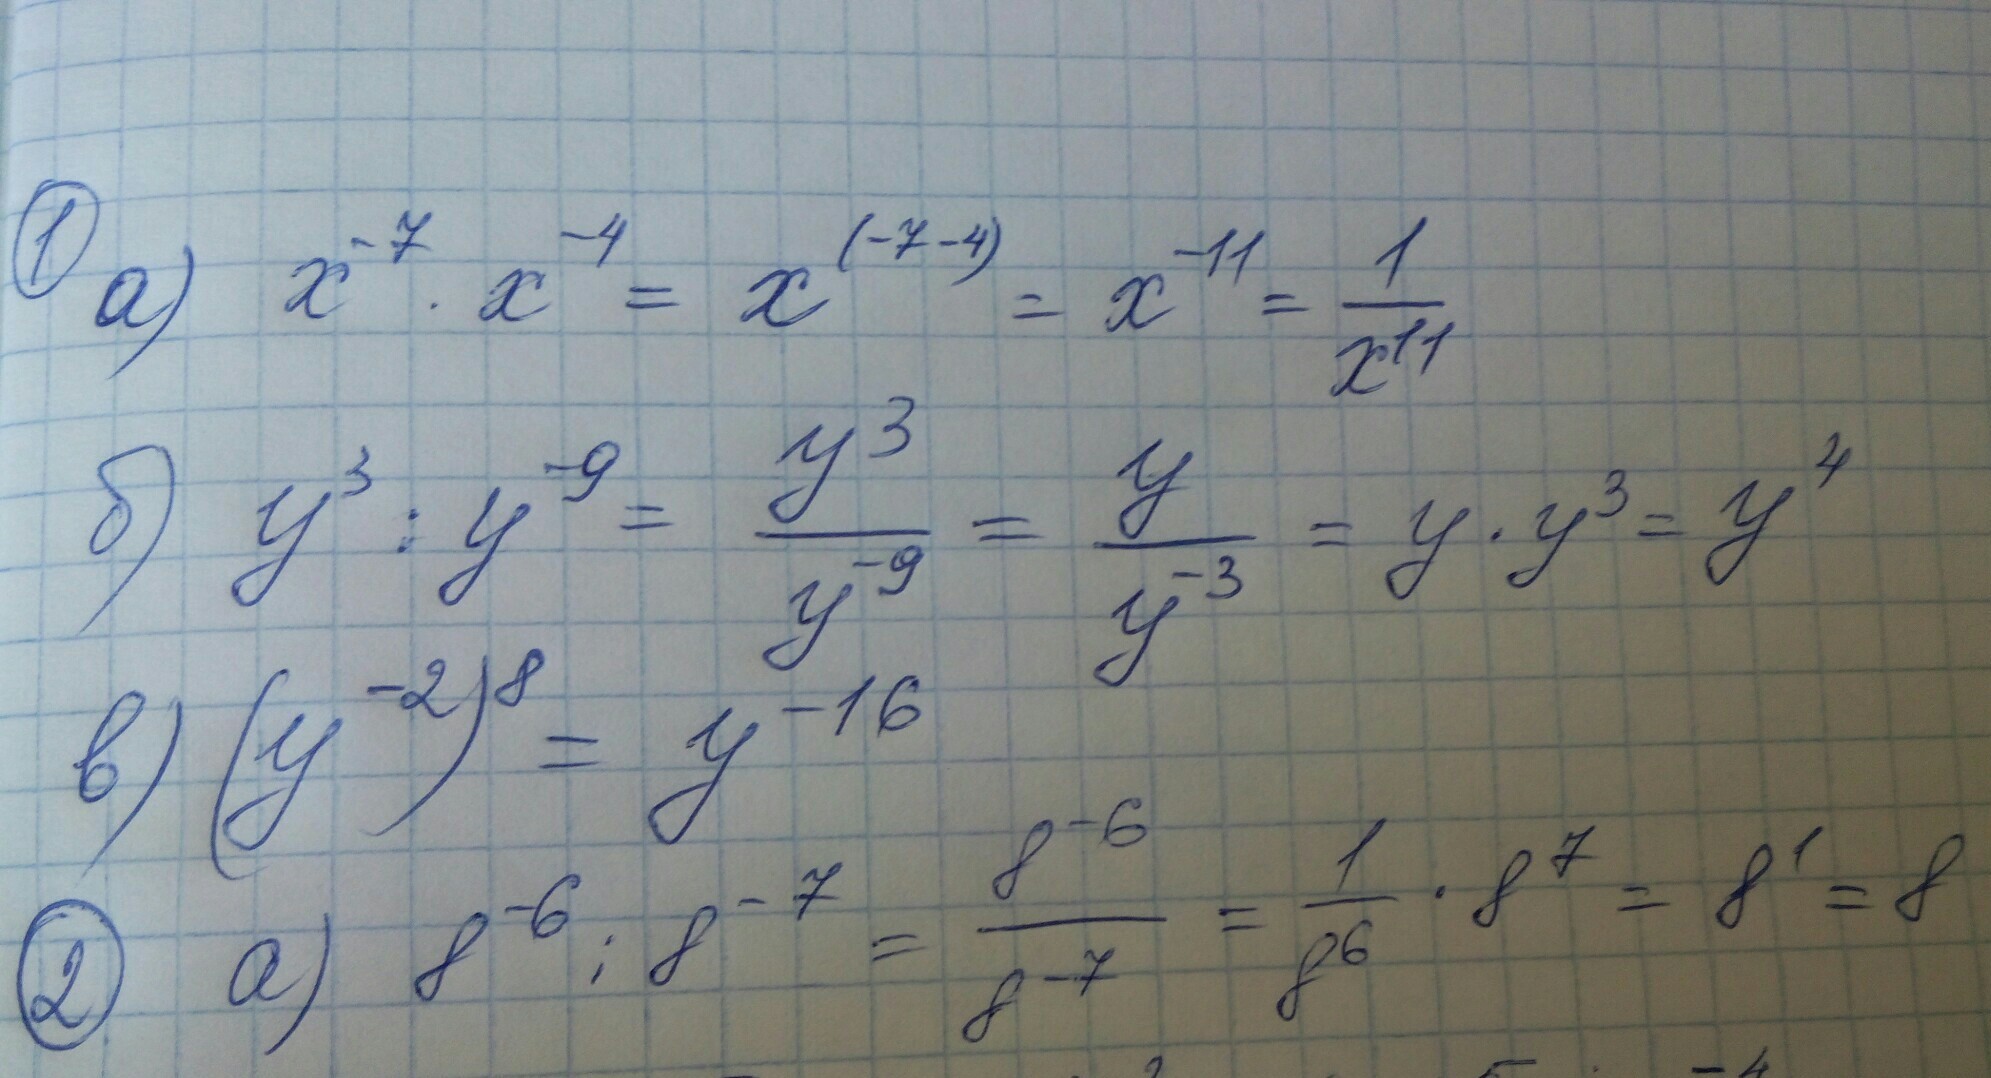 ① а) x⁻⁷ · x⁻⁴ = x⁽⁻⁷⁻⁴⁾ = x⁻¹¹ = 1/x¹¹
б) y³ : y⁻⁹ = y³/y⁻⁹ = y/y⁻³ = y · y³ = y⁴
в) (y⁻²)⁸ = y⁻¹⁶
② а) 8⁻⁶ : 8⁻⁷ = 8⁻⁶/8⁻⁷ = 1/8⁶ · 8⁷ = 8¹ = 8